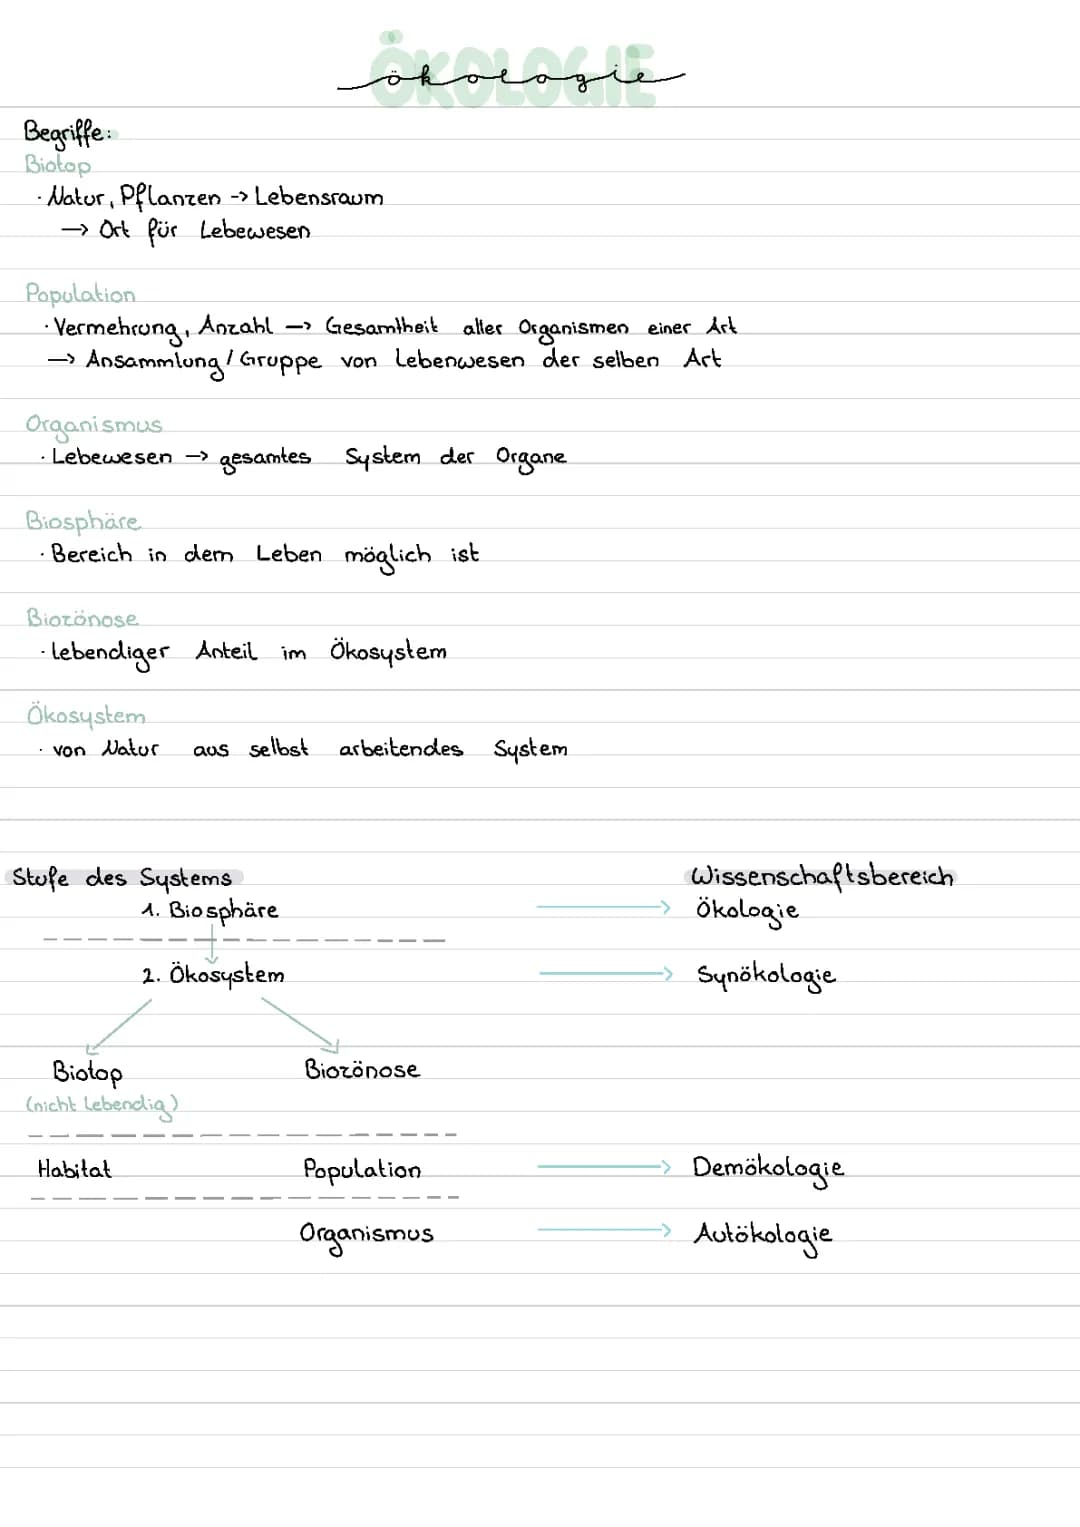 ÖKOLOGIE
ökologie
Begriffe:
Biotop
· Natur, Pflanzen -> Lebensraum
→ Ort für Lebewesen
Population
· Vermehrung, Anzahl → Gesamtheit aller Organismen einer Art
→ Ansammlung / Gruppe von Lebenwesen der selben Art
Organismus
· Lebewesen → gesamtes System der Organe
Biosphäre
· Bereich in dem Leben möglich ist
Biozönose
· lebendiger Anteil im Ökosystem
Ökosystem
· von Natur aus selbst arbeitendes System
Stufe des Systems Wissenschaftsbereich
1. Biosphäre → Ökologie
2. Ökosystem → Synökologie
Biotop Biozönose
(nicht Lebendig)
Habitat Population → Demökologie
Organismus → Autökologie